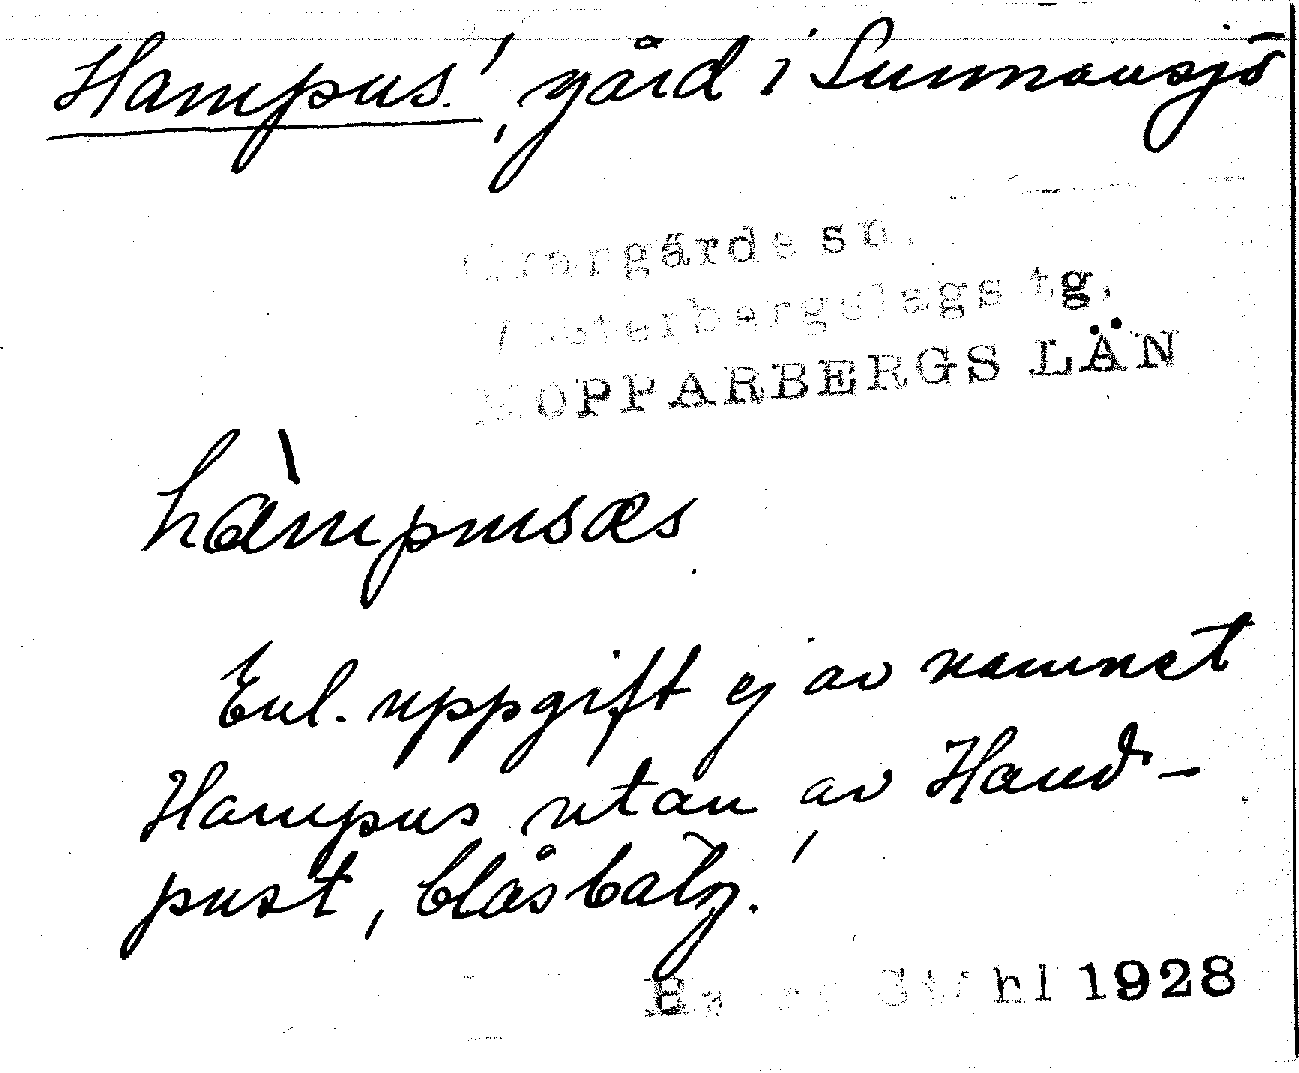 Hampus', gård i Sunnansjö
Grangärde sn.
Västerbergslags tg.
KOPPARBERGS LÄN
hàmpusæs
Enl. uppgift ej av namnet
Hampus utan av Hand-
pust, blåsbalg.'
Ståhl 1928